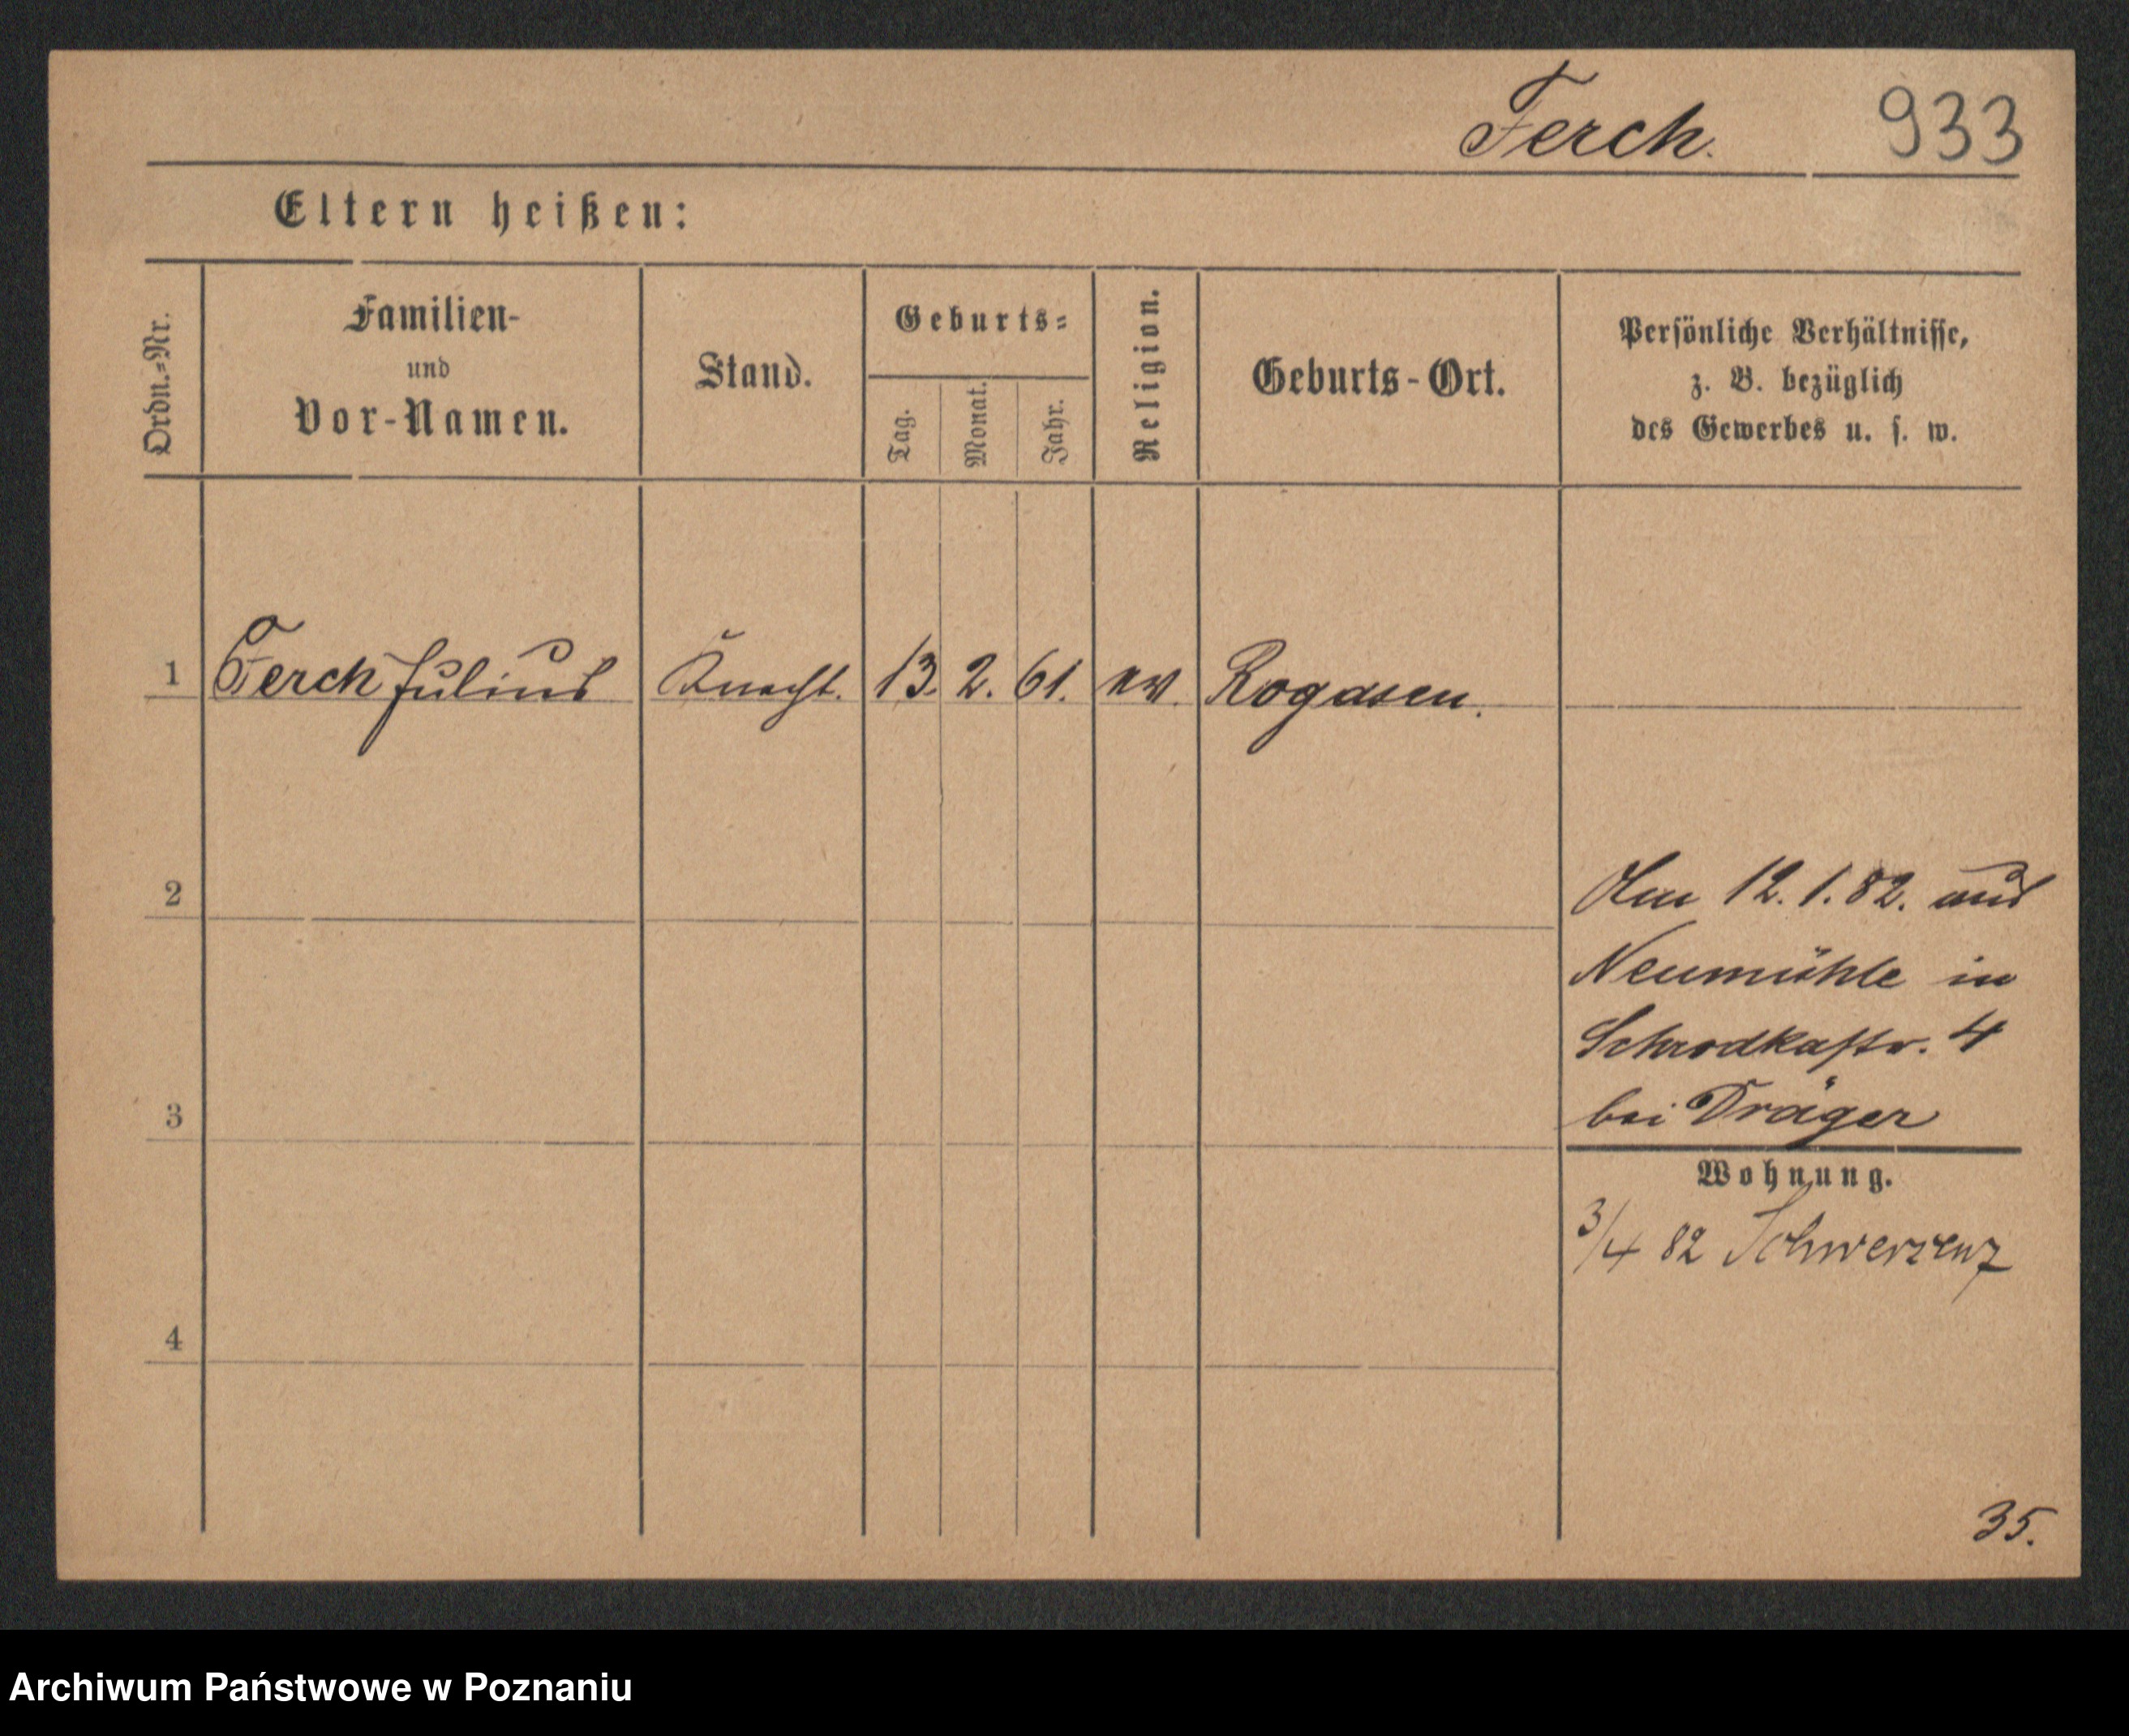 Ferch. 933
Eltern heißen:
Ordn.-Nr.
Familien-
und
Vor-Namen.
Stand.
Geburts-
Tag.
Monat.
Jahr.
Religion.
Geburts-Ort.
Persönliche Verhältnisse,
z. B. bezüglich
des Gewerbes u. s. w.
1 Ferch Julius Knecht. 13. 2. 61. ev. Rogasen.
2
Am 12. 1. 82. aus
Neumühle in
Schrodkastr. 4
3
bei Dräger
Wohnung.
3/4 82 Schwersenz
4
35.
Archiwum Państwowe w Poznaniu